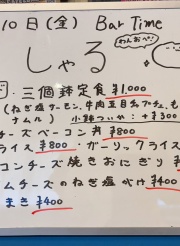 10日(金) Bar Time
しゃる
わんおぺ!
三個鉢定食 ¥1,000
(ねぎ塩サーモン、牛肉豆
ナムル) 小鉢 : +¥300
チーズベーコン丼 ¥800
ライス ¥800・ガーリックライス
コンチーズ焼きおにぎり
ムチーズのねぎ塩 ¥400
まき ¥400